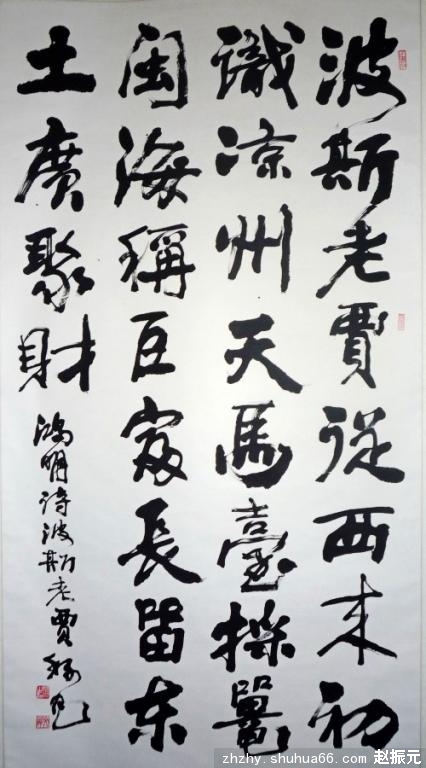 波斯老賈從西来初
識凉州天馬臺鼉
閩海稱巨富長留东
土廣聚財
鴻明詩波斯老賈
zhzhy.shuhua66.com 赵振元